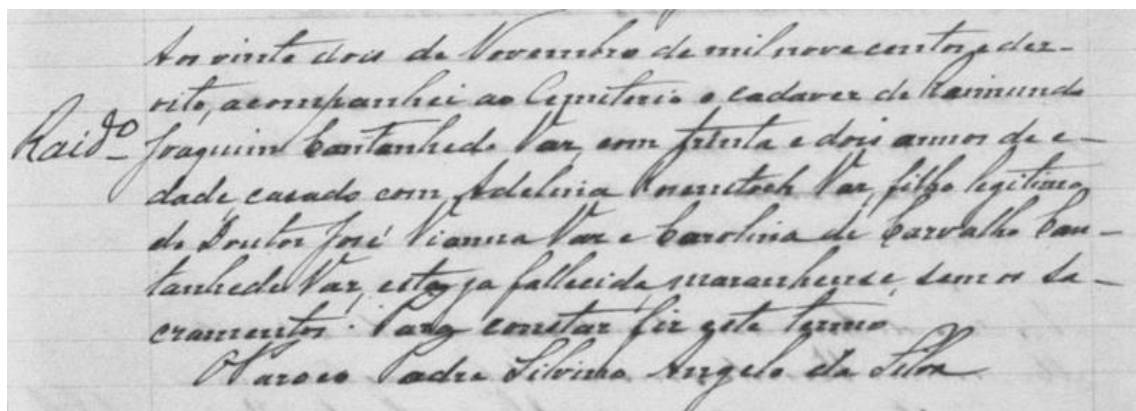 Aos vinte dois de Novembro de mil nove centos e dez-
oito, acompanhei ao Cemiterio o cadaver de Raimundo
Raidº Joaquim Cantanhede Vaz, com trinta e dois annos de e-
dade, casado com Adelina Rosenstock Vaz, filho legitimo
do Doutor José Vianna Vaz e Carolina de Carvalho Can-
tanhede Vaz, esta ja fallecida, maranhense, sem os Sa-
cramentos. Para constar fiz este termo
O Paroco Padre Silvino Angelo da Silva